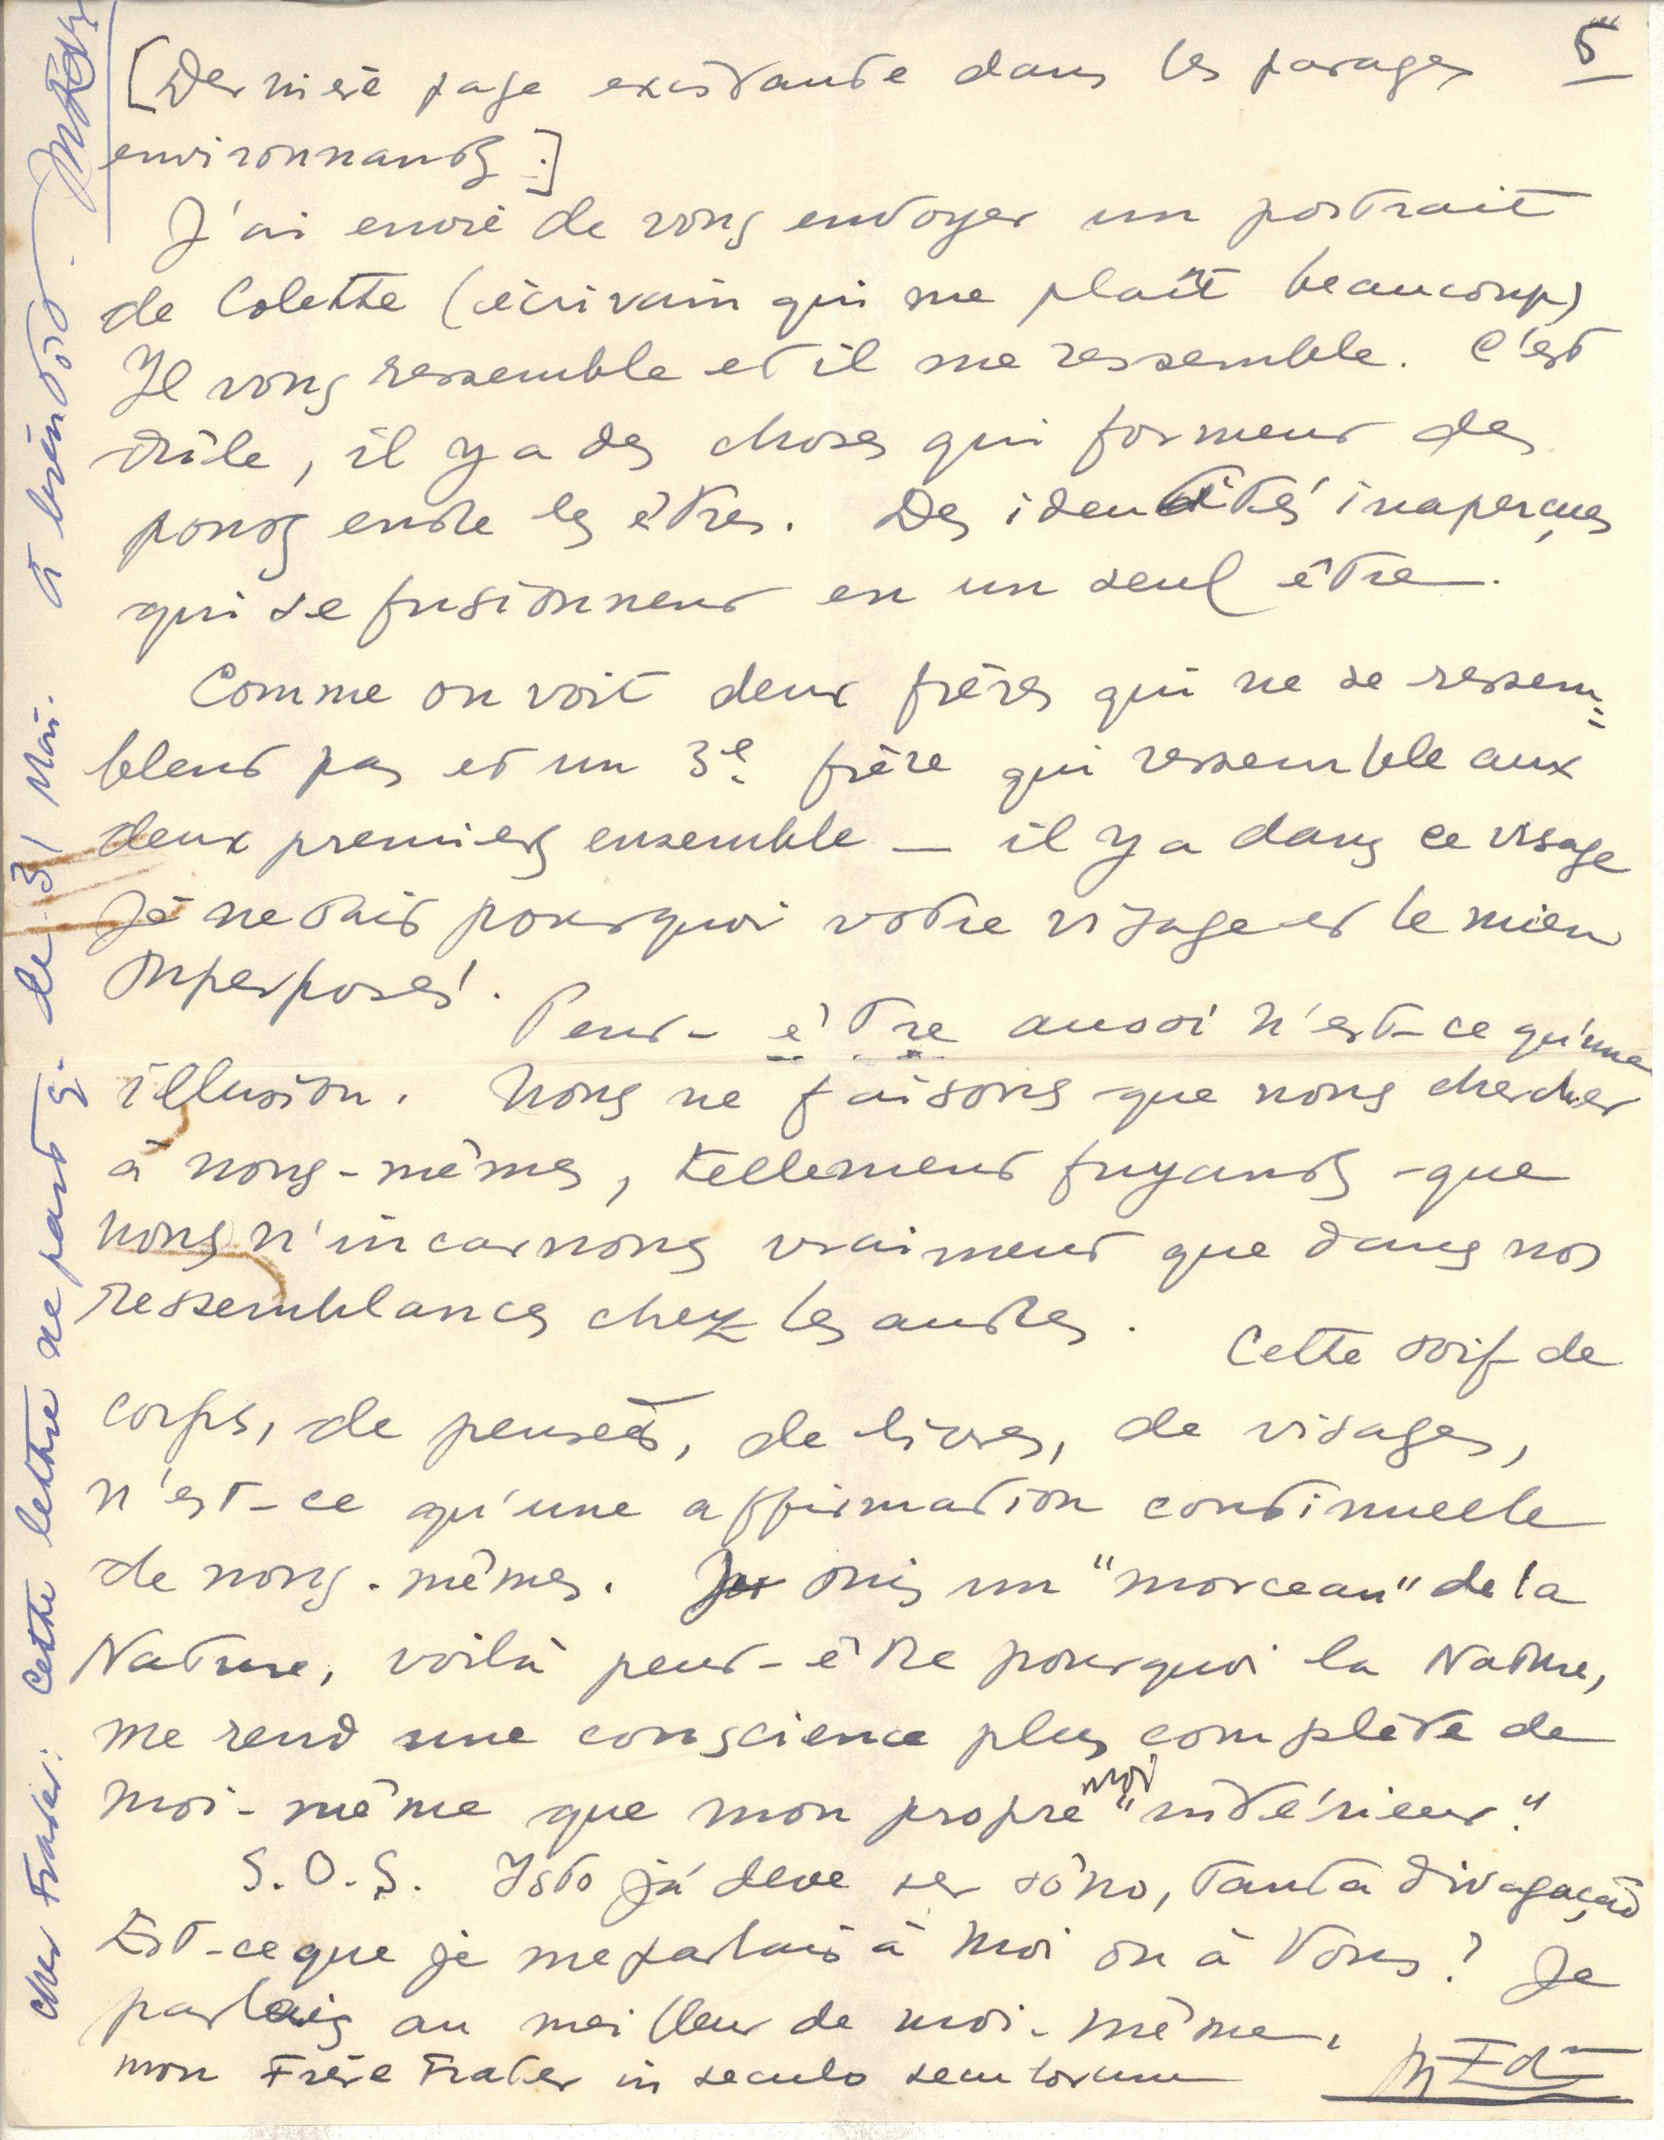 5
[Dernière page existante dans les parages
environnants.]
J'ai envie de vous envoyer un portrait
de Colette (écrivain qui me plaît beaucoup)
Il vous ressemble et il me ressemble. C'est
drôle, il y a des choses qui forment des
ponts entre les êtres. Des identités inaperçues
qui se fusionnent en un seul être.
Comme on voit deux frères qui ne se ressem=
blent pas et un 3e frère qui ressemble aux
deux premiers ensemble — il y a dans ce visage
je ne sais pourquoi votre visage et le mien
superposés.
Peut-être aussi n'est-ce qu'une
illusion. Nous ne faisons que nous chercher
à nous-mêmes, tellement fuyants que
nous n'incarnons vraiment que dans nos
ressemblances chez les autres. Cette soif de
corps, de pensées, de livres, de visages,
n'est-ce qu'une affirmation continuelle
de nous-mêmes. Je suis un "morceau" de la
Nature, voilà peut-être pourquoi la Nature,
me rend une conscience plus complète de
moi-même que mon propre "moi intérieur."
S.O.S. Isto já deve ser sôno, tanta divagação
Est-ce que je me parlais à Moi ou à Vous? Je
parlais au meilleur de moi-même,
mon Frère Frater in seculo seculorum
MEd
Cher Frater: Cette lettre ne part q. le 31 Mai. À bientôt. MEd